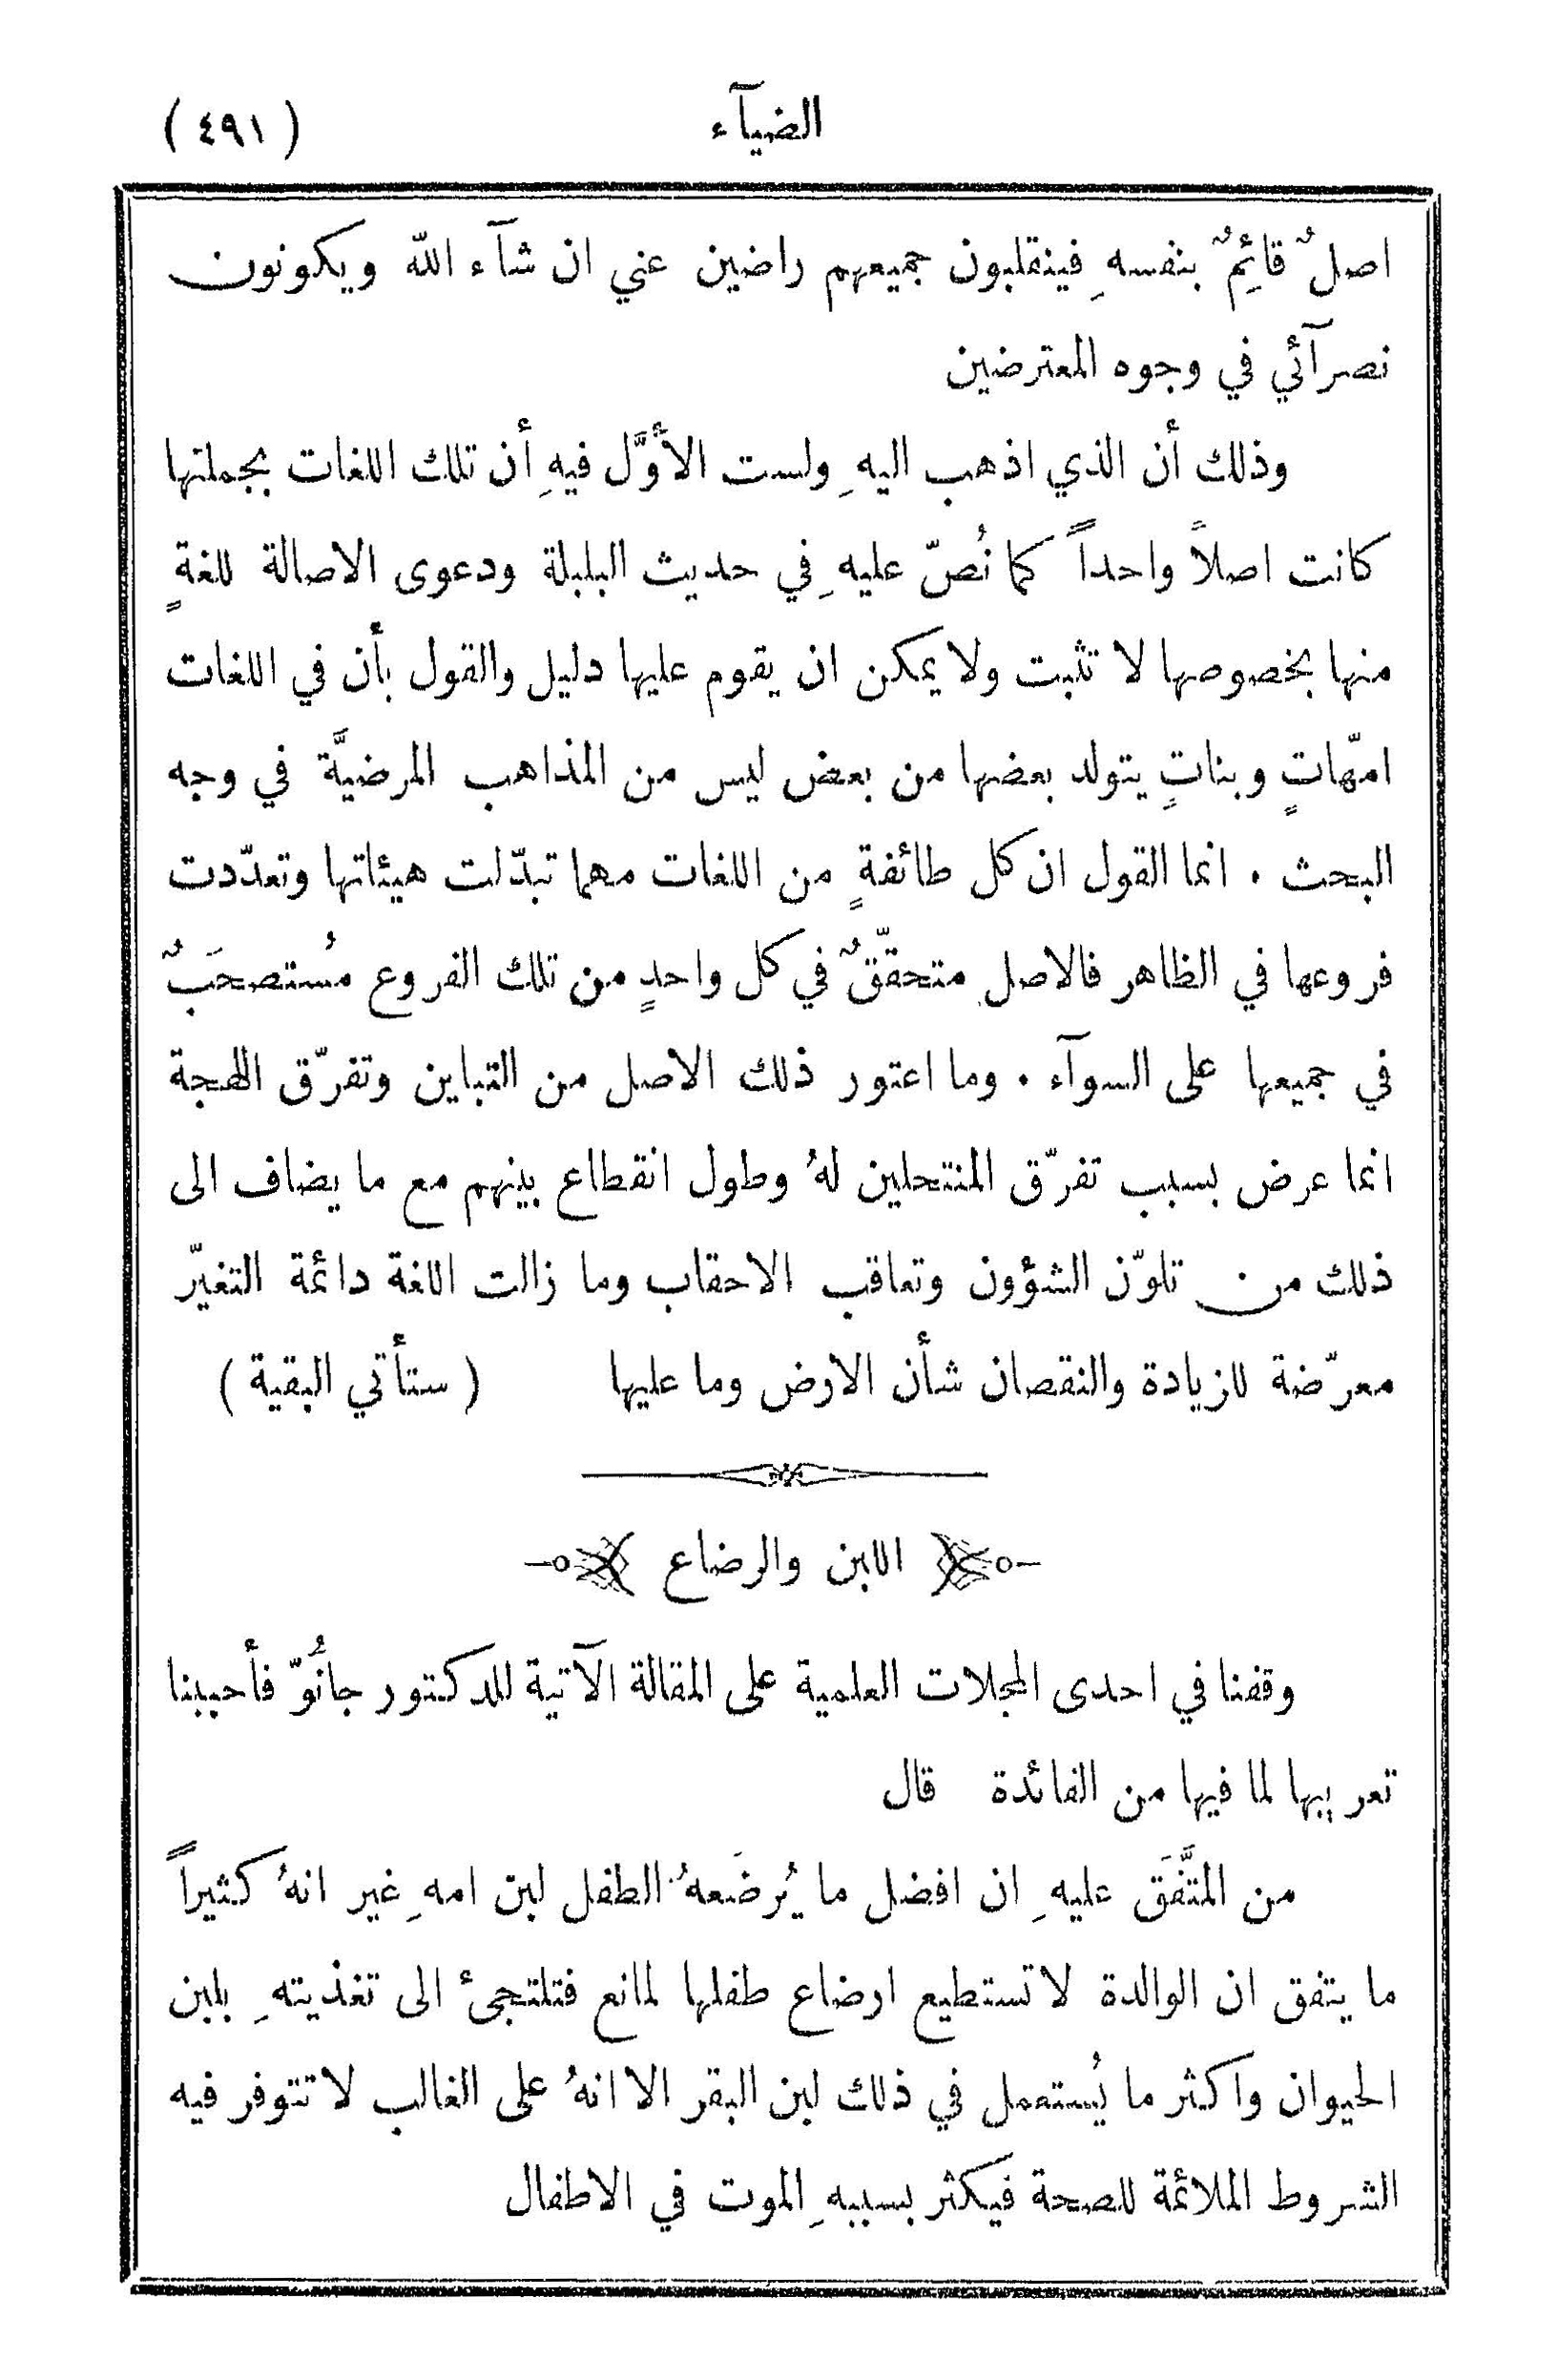 الضيآء
(٤٩١)
اصلٌ قائمٌ بنفسهِ فينقلبون جميعهم راضين عني ان شآء الله ويكونون
نصرآئي في وجوه المعترضين
وذلك أن الذي اذهب اليهِ ولست الأوَّل فيهِ أن تلك اللغات بجملتها
كانت اصلاً واحداً كما نُصّ عليهِ في حديث البلبلة ودعوى الاصالة للغةٍ
منها بخصوصها لا تثبت ولا يمكن ان يقوم عليها دليل والقول بأن في اللغات
امّهاتٍ وبناتٍ يتولد بعضها من بعض ليس من المذاهب المرضيَّة في وجه
البحث . انما القول ان كل طائفةٍ من اللغات مهما تبدّلت هيئاتها وتعدّدت
فروعها في الظاهر فالاصل متحقّقٌ في كل واحدٍ من تلك الفروع مُستصحَبٌ
في جميعها على السوآء . وما اعتور ذلك الاصل من التباين وتفرّق اللهجة
انما عرض بسبب تفرّق المنتحلين لهُ وطول انقطاع بينهم مع ما يضاف الى
ذلك من تلوّن الشؤون وتعاقب الاحقاب وما زالت اللغة دائمة التغيّر
معرّضة للزيادة والنقصان شأن الارض وما عليها (ستأتي البقية)
اللبن والرضاع
وقفنا في احدى المجلات العلمية على المقالة الآتية للدكتور جانُوّ فأحببنا
تعريبها لما فيها من الفائدة قال
من المتَّفَق عليهِ ان افضل ما يُرضَعهُ الطفل لبن امهِ غير انهُ كثيراً
ما يتفق ان الوالدة لا تستطيع ارضاع طفلها لمانع فتلتجئ الى تغذيتهِ بلبن
الحيوان واكثر ما يُستعمل في ذلك لبن البقر الا انهُ على الغالب لا تتوفر فيه
الشروط الملائمة للصحة فيكثر بسببهِ الموت في الاطفال